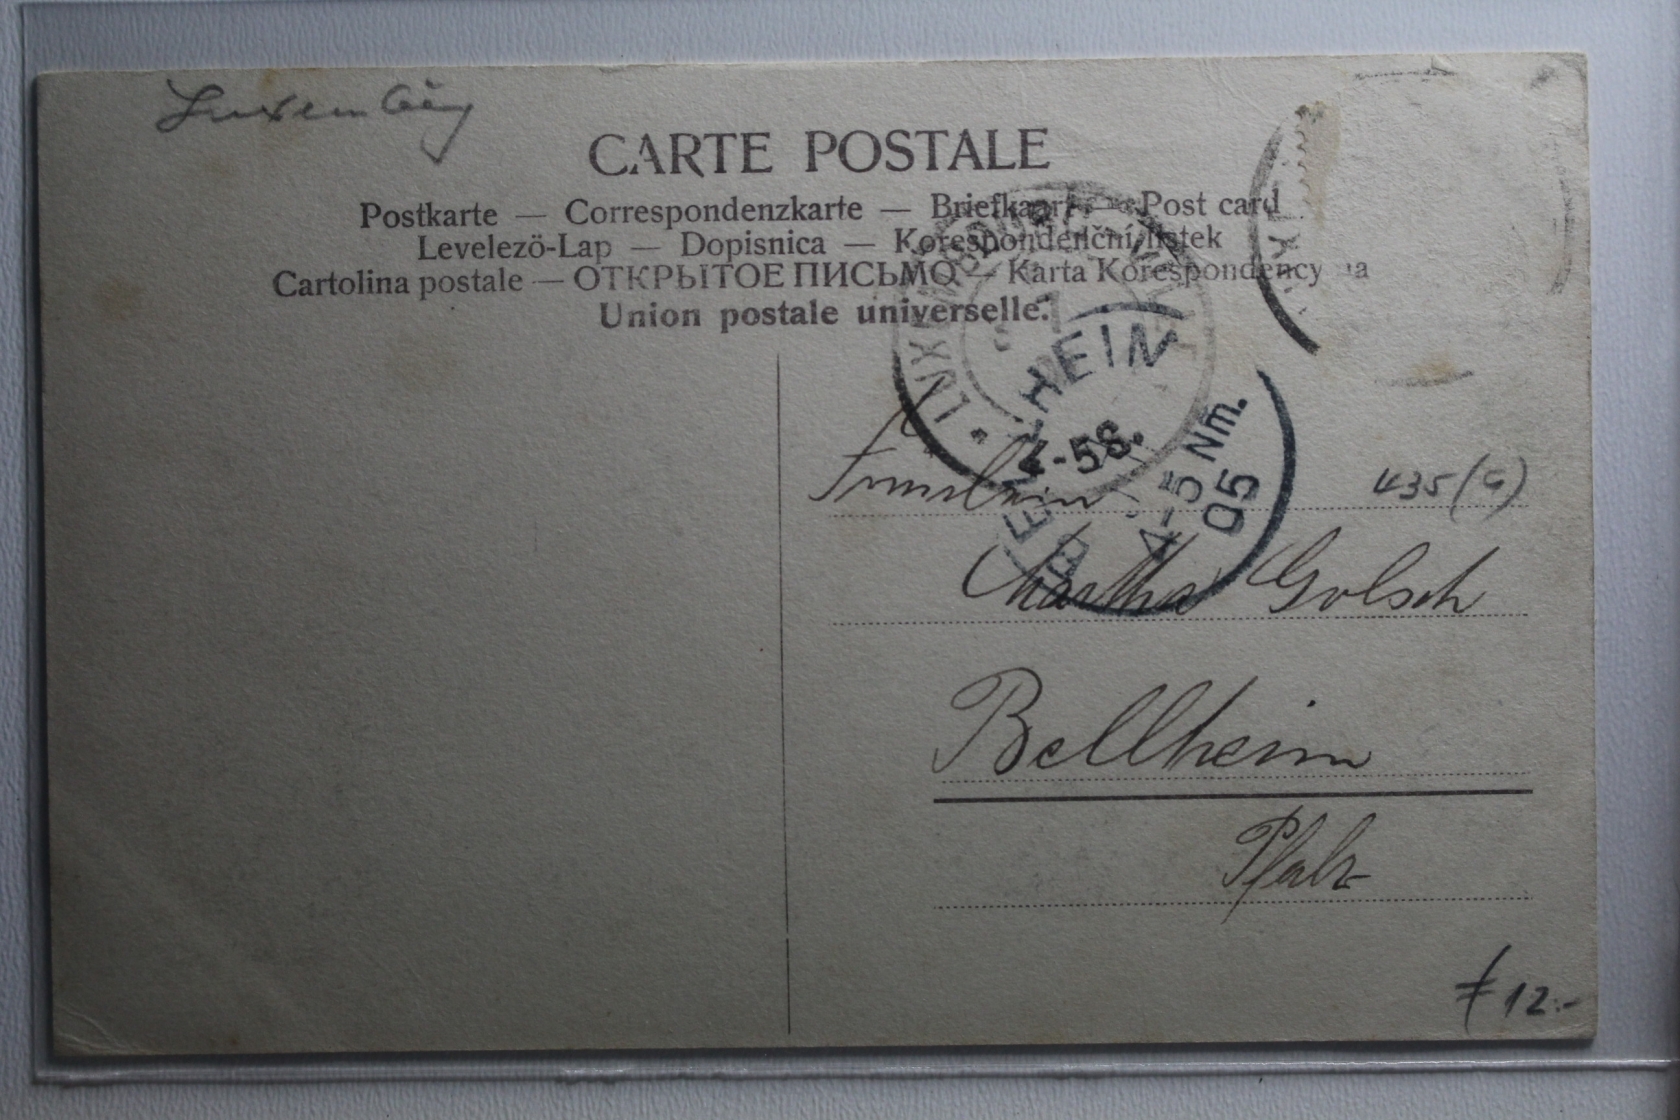 Luxemburg
CARTE POSTALE
Postkarte — Correspondenzkarte — Briefkaart — Post card
Levelezö-Lap — Dopisnica — Korespondenční lístek
Cartolina postale — ОТКРЫТОЕ ПИСЬМО — Karta Korespondencyjna
Union postale universelle.
LUXEMBOURG
BELLHEIN
4-5S.
4-5 Nm.
05
Fräulein
435 (G)
Martha Golsch
Bellheim
Pfalz
€ 12.-